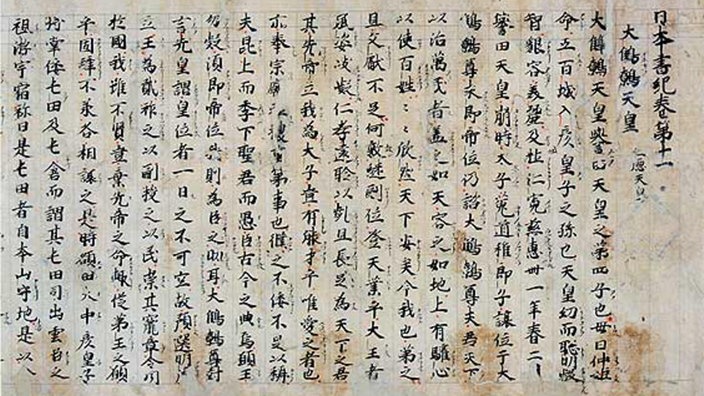 日本書紀卷第十一
大鷦鷯天皇 仁德天皇
大鷦鷯天皇譽田天皇之第四子也母曰仲姬
命五百城入彥皇子之孫也天皇幼而聰明叡
智貌容美麗及壯仁寬慈惠卌一年春二
譽田天皇崩時太子菟道稚郎子讓位于大
鷦鷯尊未即帝位仍諮大鷦鷯尊夫為天下
以治萬民者蓋之如天容之如地上有驩心
以使百姓〻〻欣然天下安矣今我也弟之
且文獻不足何敢継嗣位登天業乎大王者
風姿岐嶷仁孝遠聆以齒且長足為天下之君
其先帝立我為太子豈有能才乎唯愛之者也
亦奉宗廟重事也僕之不佞不足以稱
夫昆上而季下聖君而愚臣古今之典焉願王
勿疑須即帝位我則為臣之助耳大鷦鷯尊對
言先皇謂皇位者一日之不可空故預選明
立王為貳祚之以嗣授之以民崇其寵章令聞
於國我雖不賢豈棄先帝之命輙從弟王之願
乎固辭不承各相讓之是時額田大中彥皇子
將掌倭屯田及屯倉而謂其屯田司出雲臣之
祖淤宇宿祢曰是屯田者自本山守地是以